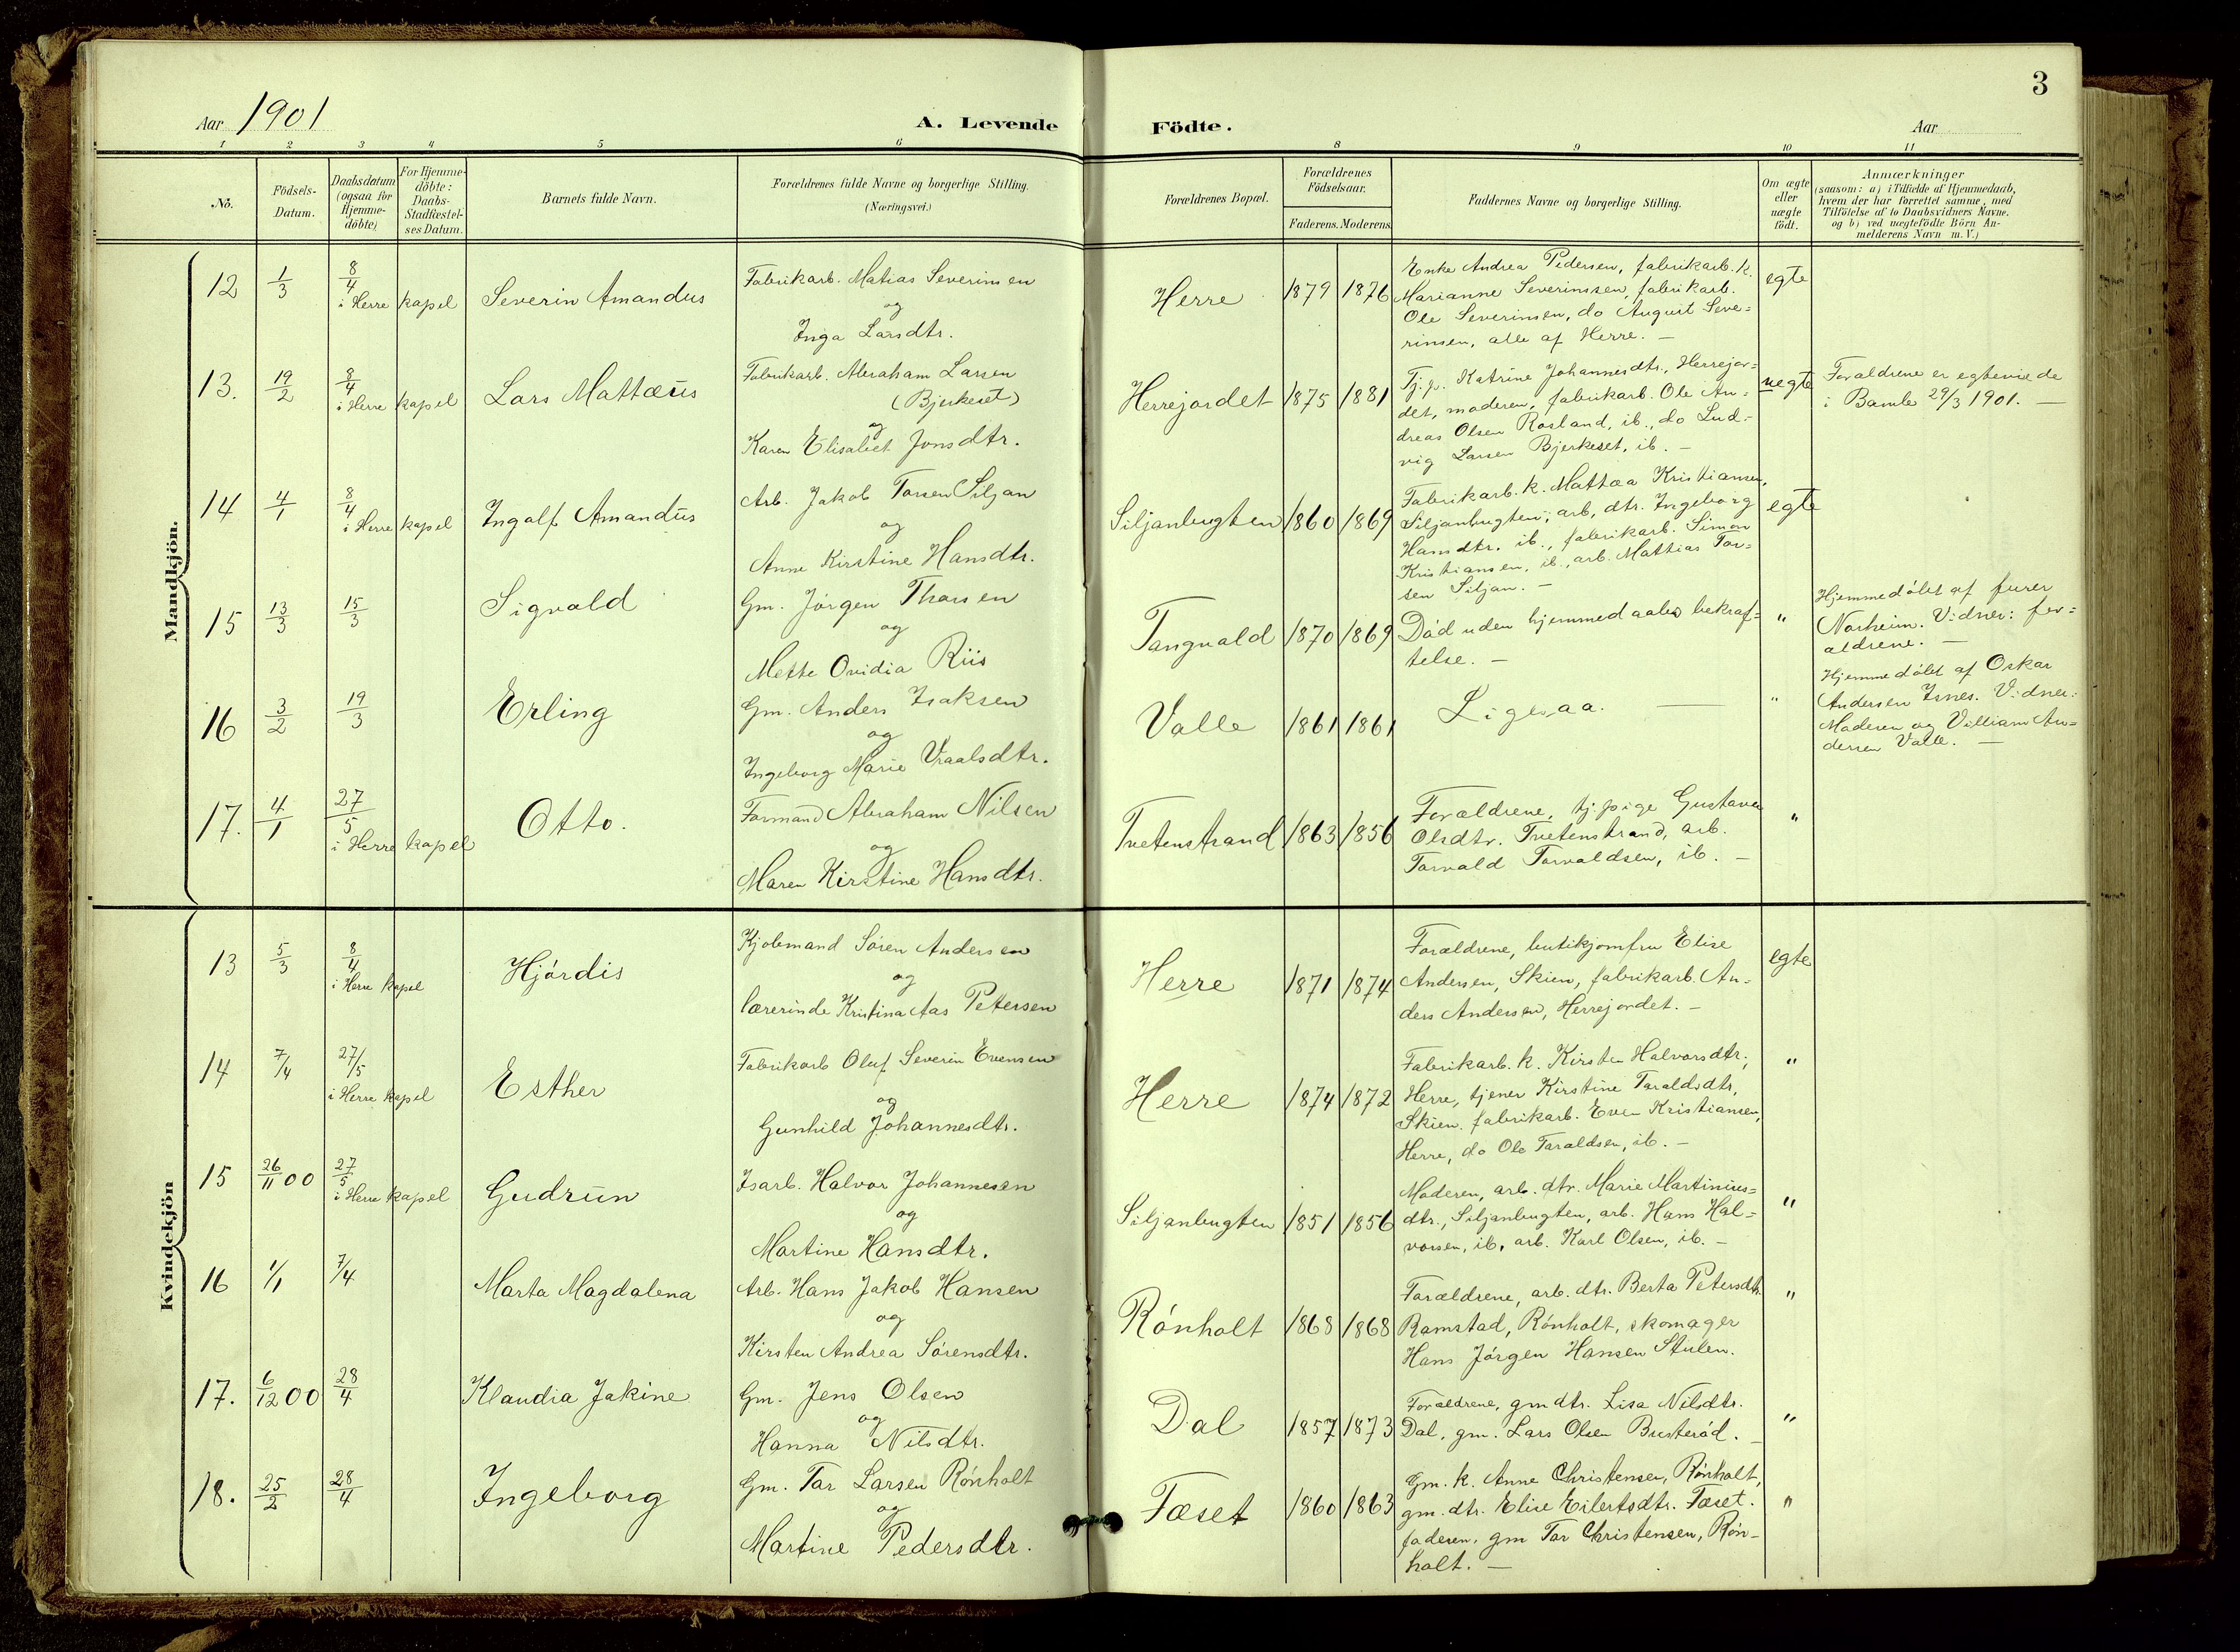 3
Aar 1901
A. Levende Födte.
Aar
1 2 3 4 5 6 8 9 10 11
No.
Födsels-
Datum.
Daabsdatum
(ogsaa for
Hjemme-
döbte)
For Hjemme-
döbte:
Daabs-
Stadfæstel-
ses Datum.
Barnets fulde Navn.
Forældrenes fulde Navne og borgerlige Stilling.
(Næringsvei.)
Forældrenes Bopæl.
Forældrenes
Födselsaar.
Faderens. Moderens.
Faddernes Navne og borgerlige Stilling.
Om ægte
eller
uægte
födt.
Anmærkninger
(saasom: a) i Tilfælde af Hjemmedaab,
hvem der har forrettet samme, med
Tilföielse af to Daabsvidners Navne.
og b) ved uægtefödte Börn An-
melderens Navn m. V.)
Mandkjön.
12
1/3
8/4
i Herre kapel
Severin Amandus
Fabrikarb. Matias Severinsen
og
Inga Larsdtr.
Herre
1879 1876
Enke Andrea Pedersen, fabrikarb. k.
Marianne Severinssen, fabrikarb.
Ole Severinsen, do August Seve=
rinsen, alle af Herre. —
egte
13.
19/2
8/4
i Herre kapel
Lars Mattæus
Fabrikarb. Abraham Larsen
(Bjerkeset)
og
Karen Elisabet Jonsdtr.
Herrejordet
1875 1881
Tj.p. Katrine Johannesdtr., Herrejor=
det, moderen, fabrikarb. Ole An=
dreas Olsen Rosland, ib., do Lud=
vig Larsen Bjerkeset, ib. —
uegte
Forældrene er egteviede
i Bamle 29/3 1901. —
14
4/1
8/4
i Herre kapel
Ingolf Amandus
Arb. Jakob Torsen Siljan
og
Anne Kirstine Hansdtr.
Siljanbugten
1860 1869
Fabrikarb. k. Mattæa Kristiansen,
Siljanbugten, arb. dtr. Ingeborg
Hansdtr. ib., fabrikarb. Simon
Kristiansen, ib., arb. Mattias Tor=
sen Siljan. —
egte
15
13/3
15/3
Sigvald
Gm. Jörgen Thorsen
og
Mette Ovidia Riis
Tangvald
1870 1869
Död uden hjemmedaabs bekræf=
telse. —
"
Hjemmedöbt af furer
Norheim. Vidner: for=
ældrene. —
16
3/2
19/3
Erling
Gm. Anders Isaksen
og
Ingeborg Marie Vraalsdtr.
Valle
1861 1861
Ligesaa. —
"
Hjemmedöbt af Oskar
Andersen Isnes. Vidner:
Moderen og Villiam An=
dersen Valle. —
17.
4/1
27/5
i Herre kapel
Otto.
Formand Abraham Nilsen
og
Maren Kirstine Hansdtr.
Tvetenstrand
1863 1856
Forældrene, tj.pige Gustava
Olsdtr. Tvetenstrand, arb.
Torvald Torvaldsen, ib. —
"
Kvindekjön
13
5/3
8/4
i Herre kapel
Hjördis
Kjöbmand Sören Andersen
og
lærerinde Kristina Aas Petersen
Herre
1871 1874
Forældrene, butikjomfru Elise
Andersen, Skien, fabrikarb. An=
ders Andersen, Herrejordet. —
egte
14
7/4
27/5
i Herre kapel
Esther
Fabrikarb Oluf Severin Evensen
og
Gunhild Johannesdtr.
Herre
1874 1872
Fabrikarb. k. Kirsten Halvorsdtr.,
Herre, tjener Kirstine Taraldsdtr,
Skien. fabrikarb. Even Kristiansen,
Herre, do Ole Taraldsen, ib. —
"
15
26/11 00
27/5
i Herre kapel
Gudrun
Isarb. Halvor Johannesen
og
Martine Hansdtr.
Siljanbugten
1851 1856
Moderen, arb. dtr. Marie Martinius=
dtr., Siljanbugten, arb. Hans Hal=
vorsen, ib, arb. Karl Olsen, ib. —
"
16
1/1
7/4
Marta Magdalena
Arb. Hans Jakob Hansen
og
Kirsten Andrea Sörensdtr.
Rönholt
1868 1868
Forældrene, arb. dtr. Berta Petersdtr.
Ramstad, Rönholt, skomager
Hans Jörgen Hansen Stulen.
"
17.
6/12 00
28/4
Klaudia Jakine
Gm. Jens Olsen
og
Hanna Nilsdtr.
Dal
1857 1873
Forældrene, gmdtr. Lisa Nilsdtr.
Dal, gm. Lars Olsen Busteröd. —
"
18.
25/2
28/4
Ingeborg
Gm. Tor Larsen Rönholt
og
Martine Pedersdtr.
Fæset
1860 1863
Gm. k. Anne Christensen, Rönholt,
gm. dtr. Elise Eilertsdtr. Fæset.
faderen, gm Tor Christensen, Rön-
holt. —
"